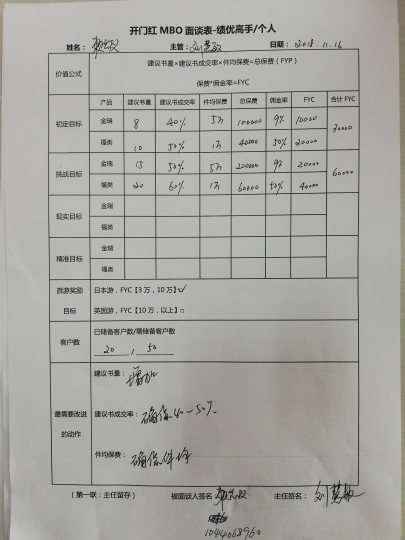 开门红 MBO 面谈表-绩优高手/个人
姓名： 主管：刘慧敏 日期：2018.11.16
价值公式
建议书量×建议书成交率×件均保费=总保费（FYP）
保费*佣金率=FYC
产品 建议书量 建议书成交率 件均保费 总保费 佣金率 FYC 合计 FYC
初定目标 金瑞 8 40% 5万 100000 9% 10000 30000
福类 10 50% 1万 40000 50% 20000
挑战目标 金瑞 15 50% 5万 200000 9% 20000 60000
福类 20 60% 1万 60000 50% 40000
现实目标 金瑞
福类
精准目标 金瑞
福类
旅游奖励
目标
日本游，FYC【3万，10万】☑
英国游，FYC【10万，以上】□
客户数
已储备客户数/需储备客户数
20 / 50
最需要改进
的动作
建议书量：增加
建议书成交率：确保40-50%
件均保费：确保件均
（第一联：主任留存） 被面谈人签名： 主任签名：刘慧敏
1044068960